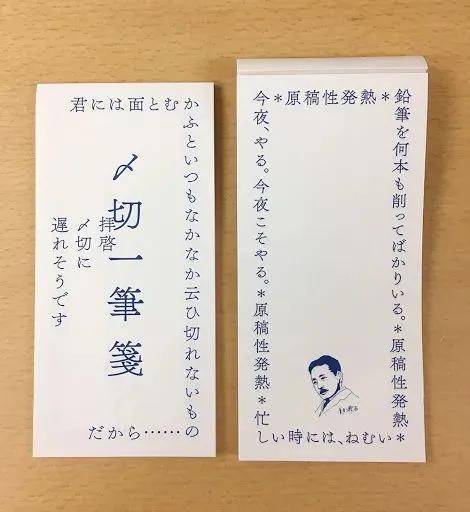 君には面とむか
ふといつもなかなか云ひ切れないもの
だから……
〆切一筆箋
拝啓
〆切に
遅れそうです
＊原稿性発熱＊
鉛筆を何本も削ってばかりいる。＊原稿性発熱＊
今夜、やる。今夜こそやる。＊原稿性発熱＊忙
しい時には、ねむい